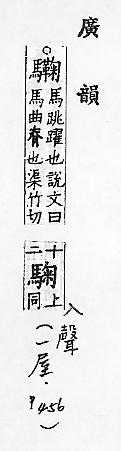 廣韻
○驧馬跳躍也說文曰
馬曲脊也渠竹切
十二䮗上同
入聲(一屋·P456)